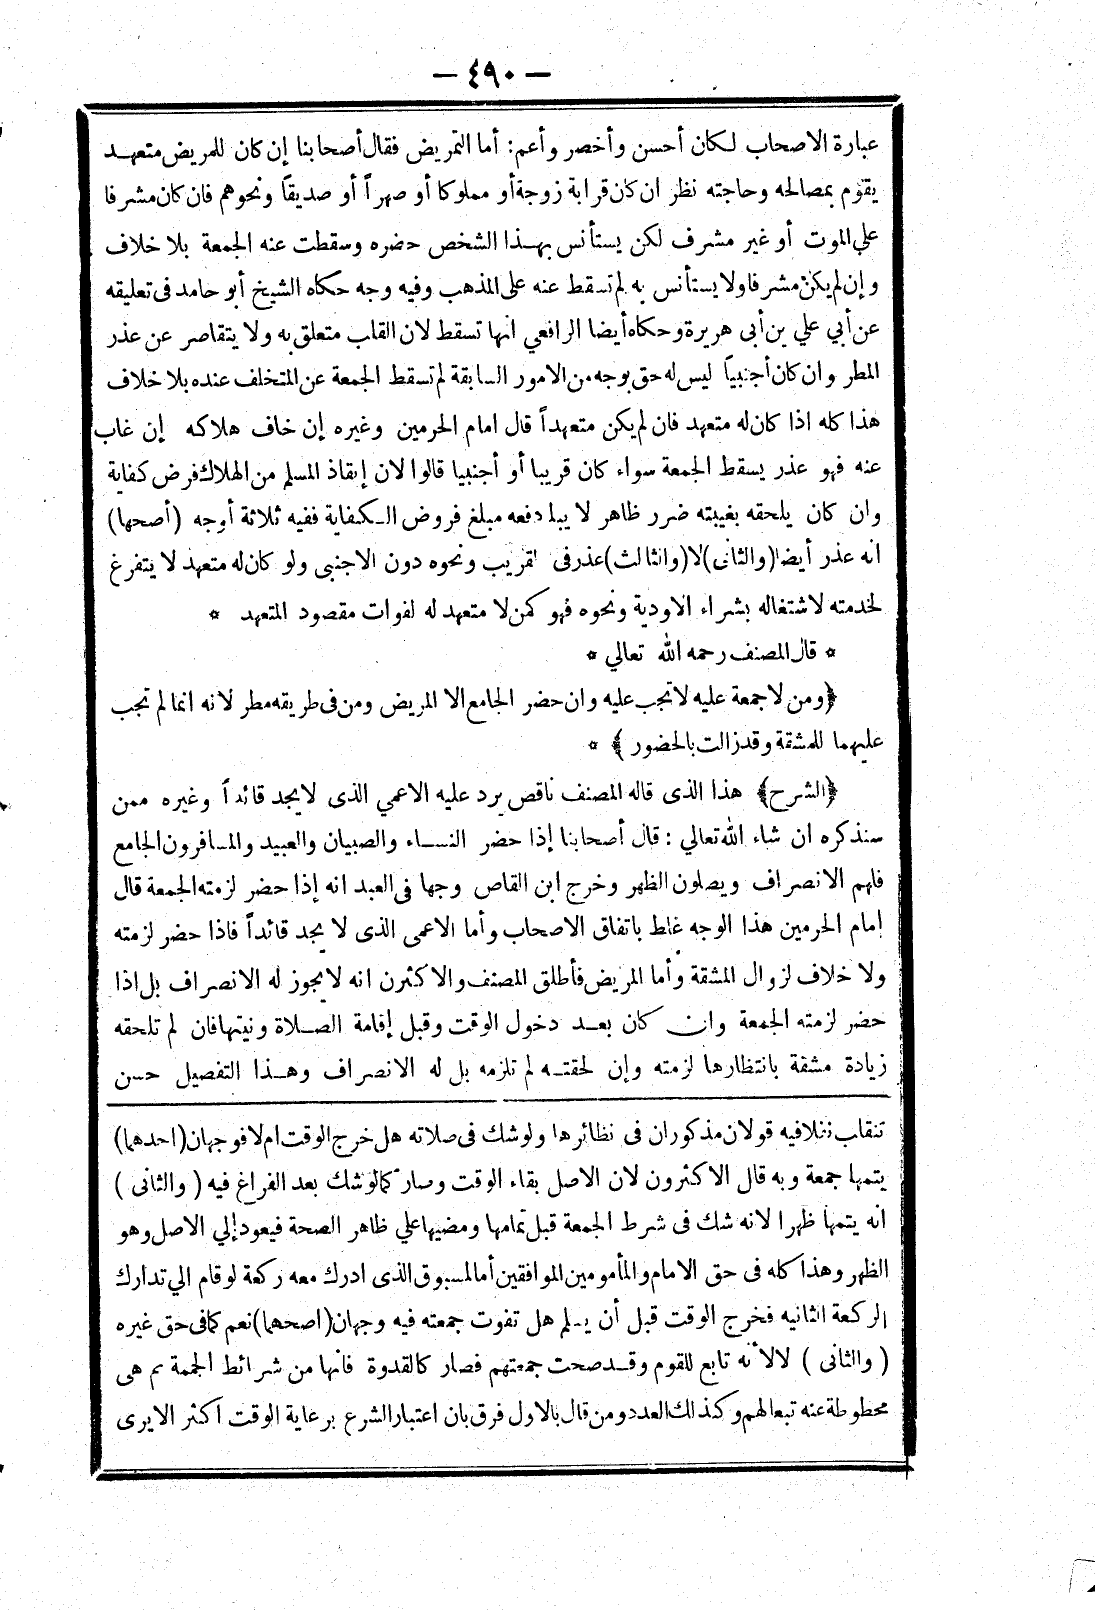 — ٤٩٠ —
عبارة الاصحاب لكان أحسن وأخصر وأعم: أما التمريض فقال أصحابنا إن كان للمريض متعهد
يقوم بمصالحه وحاجته نظر ان كان قرابة زوجة أو مملوكا أو صهراً أو صديقاً ونحوهم فان كان مشرفا
علي الموت أو غير مشرف لكن يستأنس بهذا الشخص حضره وسقطت عنه الجمعة بلا خلاف
وإن لم يكن مشرفا ولا يستأنس به لم تسقط عنه على المذهب وفيه وجه حكاه الشيخ أبو حامد فى تعليقه
عن أبي علي بن أبى هريرة وحكاه أيضا الرافعي انها تسقط لان القاب متعلق به ولا يتقاصر عن عذر
المطر وان كان أجنبياً ليس له حق بوجه من الامور السابقة لم تسقط الجمعة عن المتخلف عنده بلا خلاف
هذا كله اذا كان له متعهد فان لم يكن متعهداً قال امام الحرمين وغيره إن خاف هلاكه إن غاب
عنه فهو عذر يسقط الجمعة سواء كان قريبا أو أجنبيا قالوا لان إنقاذ المسلم من الهلاك فرض كفاية
وان كان يلحقه بغيبته ضرر ظاهر لا يبلغ دفعه مبلغ فروض الكفاية ففيه ثلاثة أوجه (أصحها)
انه عذر أيضا (والثانى) لا (والثالث) عذر فى القريب ونحوه دون الاجنبى ولو كان له متعهد لا يتفرغ
لخدمته لاشتغاله بشراء الاودية ونحوه فهو كمن لا متعهد له لفوات مقصود المتعهد *
* قال المصنف رحمه الله تعالي *
﴿ومن لا جمعة عليه لا تجب عليه وان حضر الجامع الا المريض ومن فى طريقه مطر لانه انما لم تجب
عليهما للمشقة وقد زالت بالحضور﴾ *
﴿الشرح﴾ هذا الذى قاله المصنف ناقص يرد عليه الاعمي الذى لا يجد قائداً وغيره ممن
سنذكره ان شاء الله تعالي: قال أصحابنا إذا حضر النساء والصبيان والعبيد والمسافرون الجامع
فلهم الانصراف ويصلون الظهر وخرج ابن القاص وجها فى العبد انه إذا حضر لزمته الجمعة قال
إمام الحرمين هذا الوجه غلط باتفاق الاصحاب وأما الاعمى الذى لا يجد قائداً فاذا حضر لزمته
ولا خلاف لزوال المشقة وأما المريض فأطلق المصنف والاكثرن انه لا يجوز له الانصراف بل اذا
حضر لزمته الجمعة وان كان بعد دخول الوقت وقبل إقامة الصلاة ونيتها فان لم تلحقه
زيادة مشقة بانتظارها لزمته وإن لحقته لم تلزمه بل له الانصراف وهذا التفصيل حسن
تنقلب نفلا فيه قولان مذكوران فى نظائرها ولو شك فى صلاته هل خرج الوقت ام لا فوجهان (احدهما)
يتمها جمعة وبه قال الاكثرون لان الاصل بقاء الوقت وصار كما لو شك بعد الفراغ فيه (والثانى)
انه يتمها ظهرا لانه شك فى شرط الجمعة قبل تمامها ومضيها علي ظاهر الصحة فيعود إلي الاصل وهو
الظهر وهذا كله فى حق الامام والمأمومين الموافقين أما المسبوق الذى ادرك معه ركعة لو قام الي تدارك
الركعة الثانيه فخرج الوقت قبل أن يسلم هل تفوت جمعته فيه وجهان (اصحهما) نعم كما فى حق غيره
(والثانى) لا لأنه تابع للقوم وقد صحت جمعتهم فصار كالقدوة فانها من شرائط الجمعة ثم هى
محطوطة عنه تبعا لهم وكذلك العدد ومن قال بالاول فرق بان اعتبار الشرع برعاية الوقت اكثر الا يرى